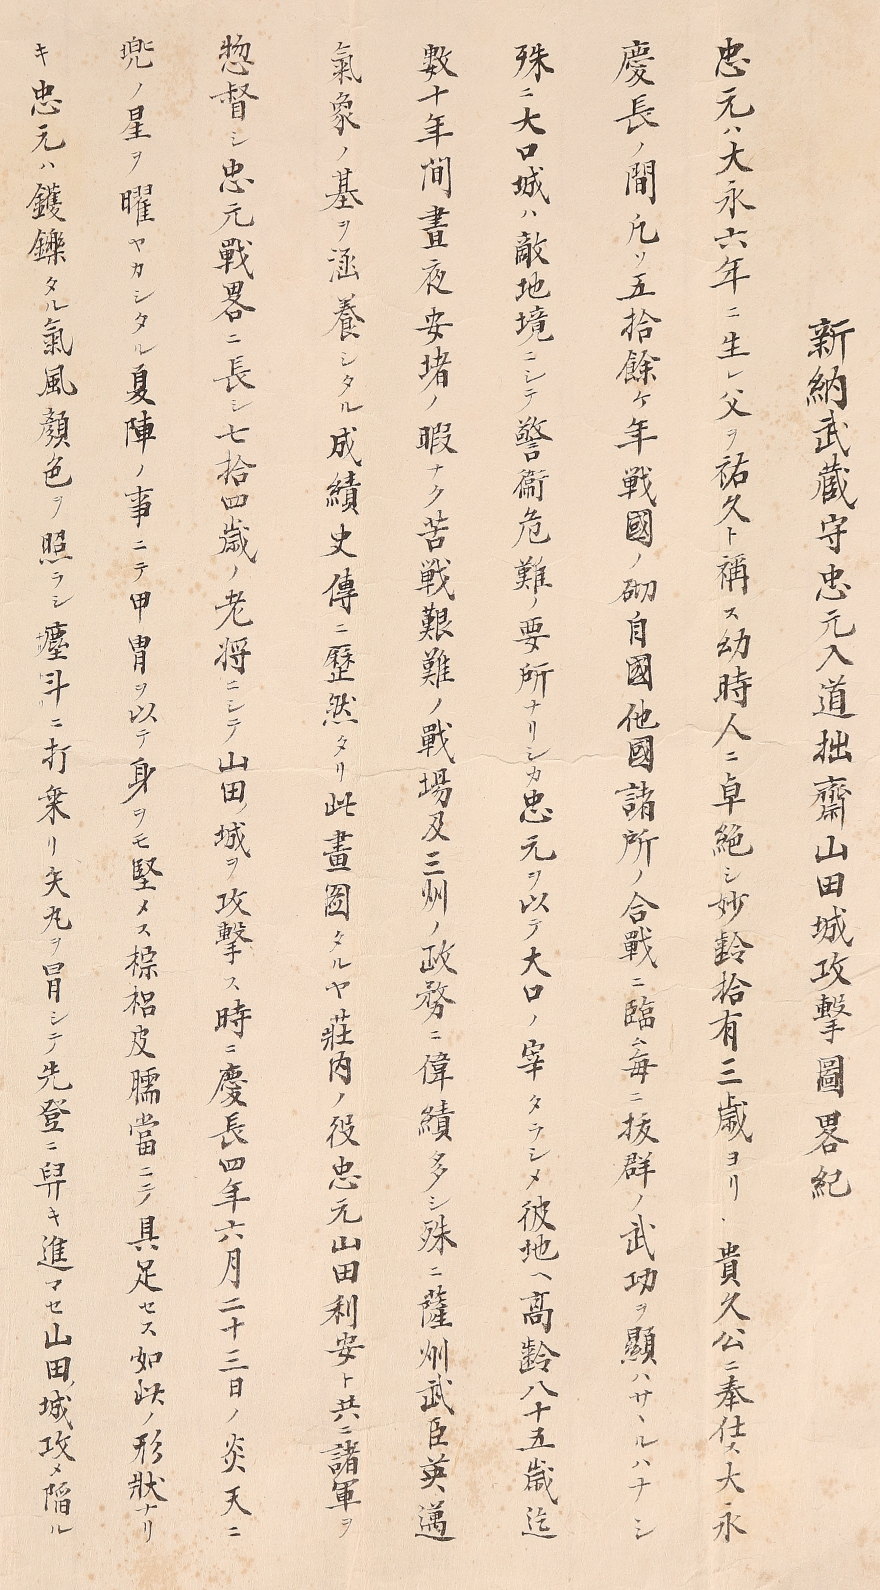 新納武蔵守忠元入道拙齋山田城攻撃圖畧紀
忠元ハ大永六年ニ生レ父ヲ祐久ト稱ス幼時人ニ卓絶シ妙齡拾有三歳ヨリ、貴久公ニ奉仕ス大永
慶長ノ間凡ソ五拾餘ケ年戦國ノ砌自國他國諸所ノ合戰ニ臨ム毎ニ抜群ノ武功ヲ顯ハサヽルハナシ
殊ニ大口城ハ敵地境ニシテ警衞危難ノ要所ナリシカ忠元ヲ以テ大口ノ宰タラシメ彼地ヘ高齢八十五歳迄
數十年間晝夜安堵ノ暇ナク苦戦艱難ノ戰場及三州ノ政務ニ偉績多シ殊ニ薩州武臣英邁
氣象ノ基ヲ涵養シタル成績史傳ニ歴然タリ此畫圖タルヤ莊内ノ役忠元山田利安ト共ニ諸軍ヲ
惣督シ忠元戰畧ニ長シ七拾四歳ノ老将ニシテ山田ノ城ヲ攻撃ス時ニ慶長四年六月二十三日ノ炎天ニ
兠ノ星ヲ曜ヤカシタル夏陣ノ事ニテ甲冑ヲ以テ身ヲモ堅メス棕梠皮臑當ニテ具足セス如此ノ形狀ナリ
キ忠元ハ鑊鑠タル氣風顏色ヲ照ラシ壥斗ニ打乗リ矢丸ヲ冒シテ先登ニ舁キ進マセ山田ノ城攻メ陥ル